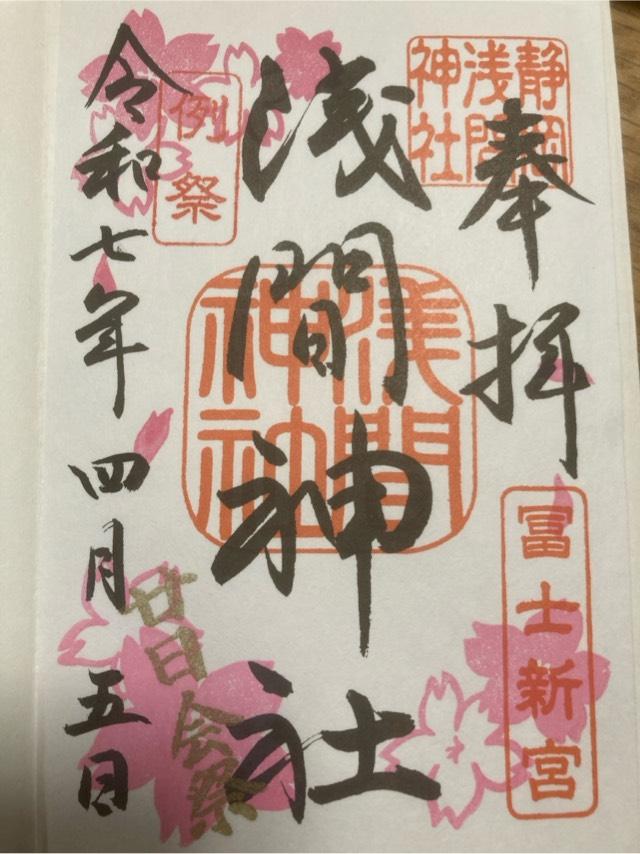 奉拝
静岡
浅間
神社
冨士新宮
浅間神社
浅間
神社
例祭
令和七年四月五日
廿日会祭